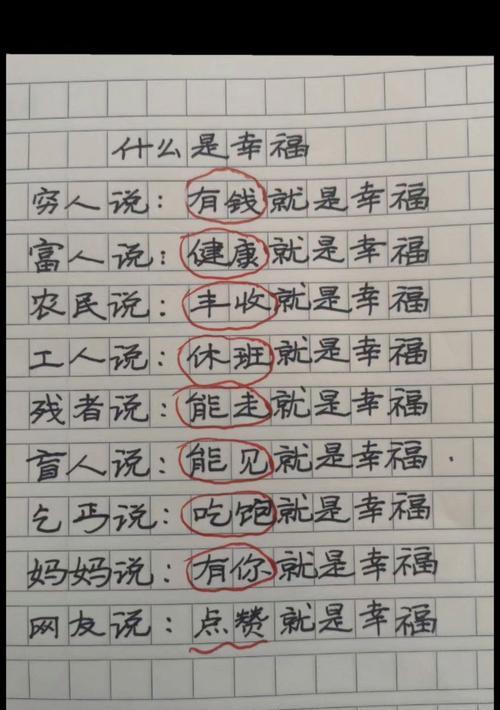 什么是幸福
穷人说：有钱就是幸福
富人说：健康就是幸福
农民说：丰收就是幸福
工人说：休班就是幸福
残者说：能走就是幸福
盲人说：能见就是幸福.
乞丐说：吃饱就是幸福
妈妈说：有你就是幸福
网友说：点赞就是幸福